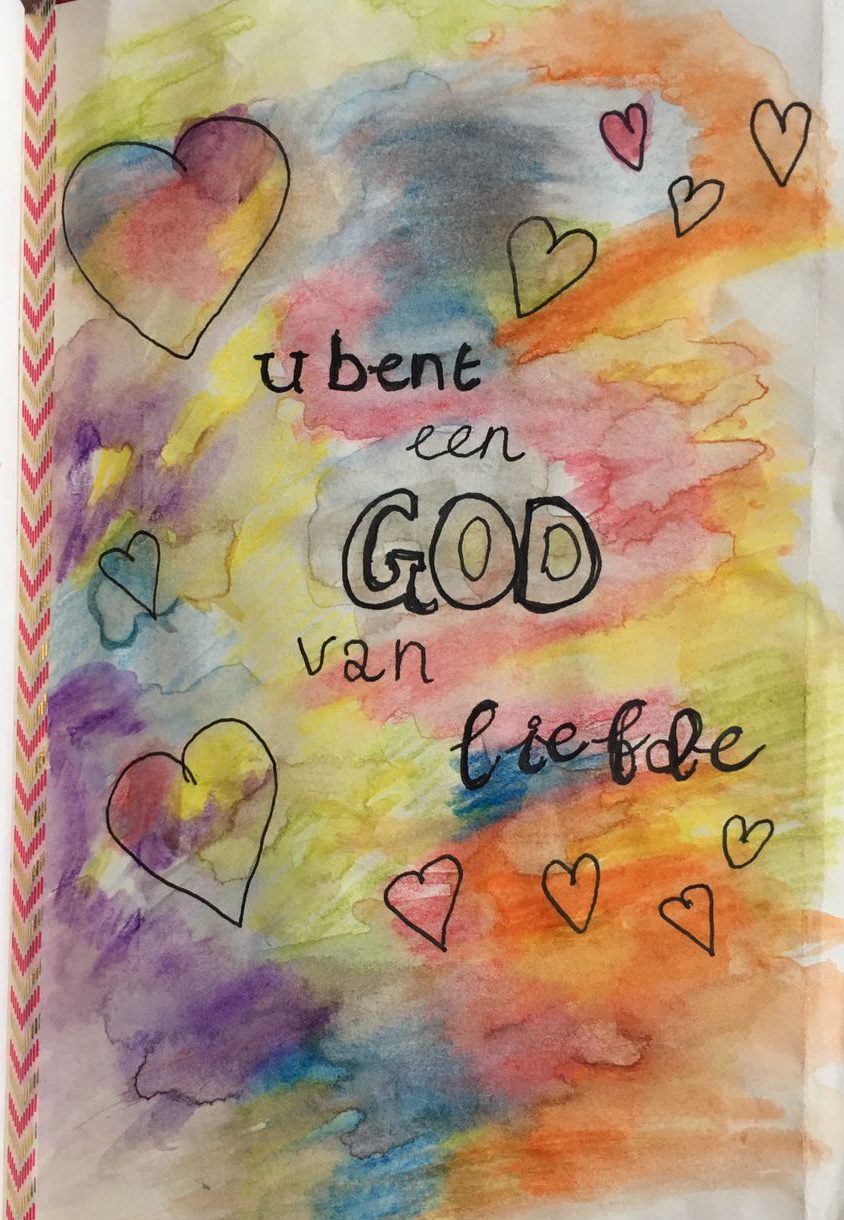 u bent
een
GOD
van
liefde